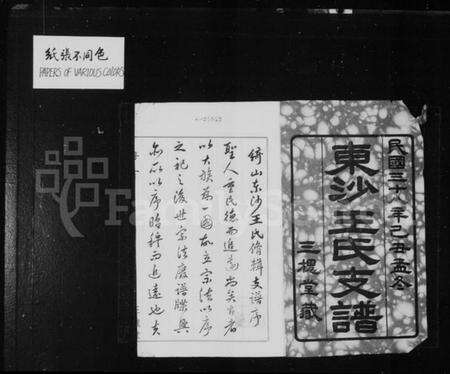 紙張不同色
PAPERS OF VARIOUS COLORS
民國三十八年己丑孟冬
東沙王氏支譜
三槐堂藏
錡山东沙王氏修輯支谱序
聖人重民德而追遠尚矣古者
以大族為一國故立宗法以序
之祀之後世宗法廢譜牒興
亦所以序昭穆而追遠也夫